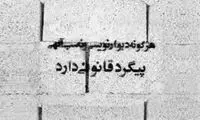 هرگونه دیوارنویسی و نصب آگهی
پیگرد قانونی دارد